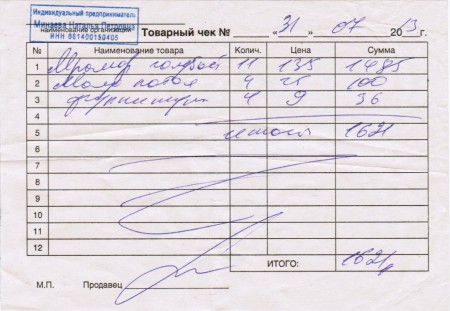 Индивидуальный предприниматель
Минаева Наталья Петровна
наименование организации
ИНН 081400150405
Товарный чек № "31" 07 2013г.
№ Наименование товара Колич. Цена Сумма
1 голубой 11 135 1485
2 4 25 100
3 фурнитура 4 9 36
4
5 итого 1621
6
7
8
9
10
11
12
ИТОГО: 1621р
М.П. Продавец